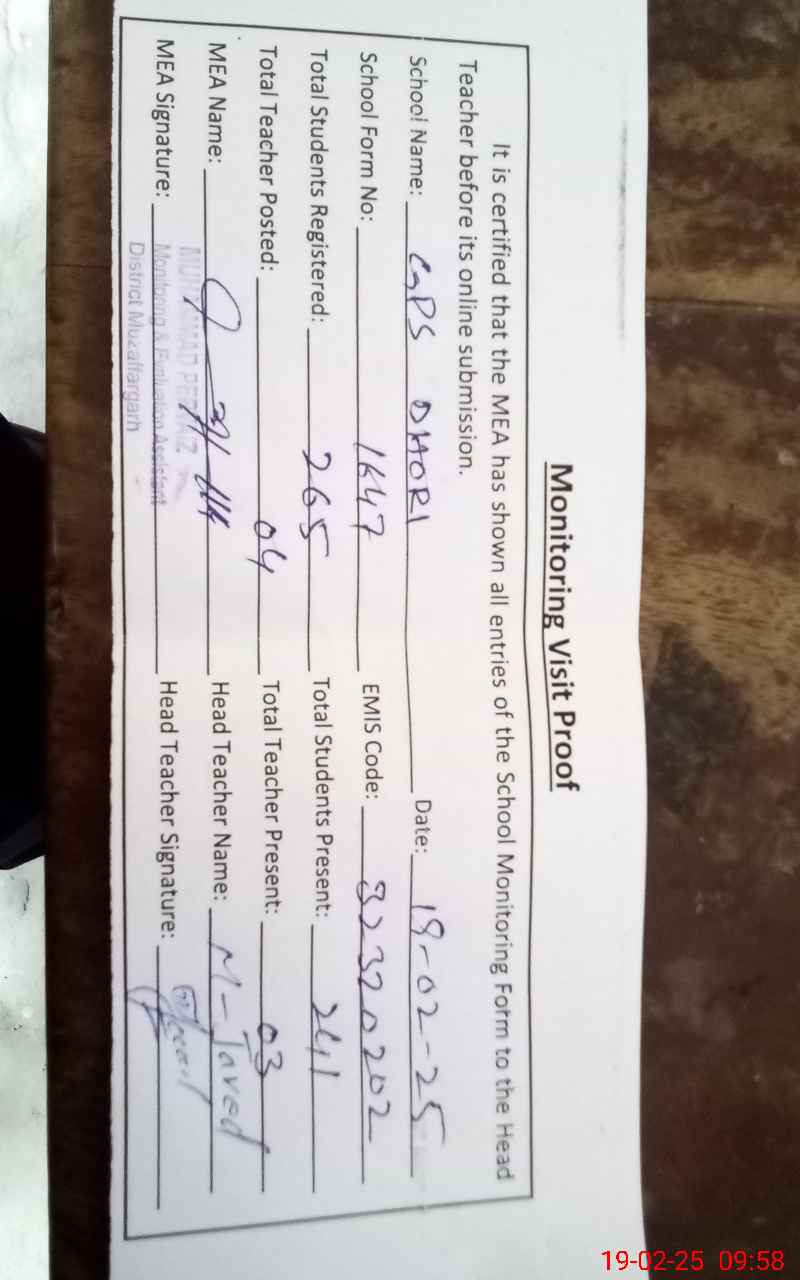 Monitoring Visit Proof
It is certified that the MEA has shown all entries of the School Monitoring Form to the Head
Teacher before its online submission.
School Name: GPS DHORI Date: 19-02-25
School Form No: 1647 EMIS Code: 32320202
Total Students Registered: 265 Total Students Present: 241
Total Teacher Posted: 04 Total Teacher Present: 03
MEA Name: Head Teacher Name: M-Javed
MEA Signature: Head Teacher Signature:
Monitoring & Evaluation Assistant
District Muzaffargarh
19-02-25 09:58